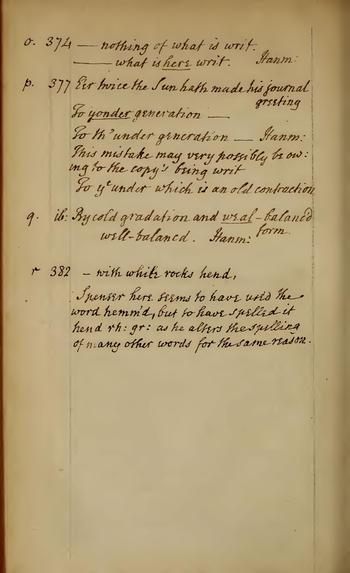 o. 374 — nothing of what is writ.
— what is here writ. Hanm:
p. 377 Eir twice the Sun hath made his journal
greeting
To yonder generation —
To th' under generation — Hanm:
This mistake may very possibly be ow:
ing to the copy's being writ
To yᵉ under which is an old contraction
q. ib: By cold gradation and weal-balanc'd
form
well-balanced. Hanm:
r 382 – with white rocks hend,
Spenser here seems to have used the
word hemm'd, but to have spelled it
hend rh: gr: as he alters the spelling
of many other words for the same reason.